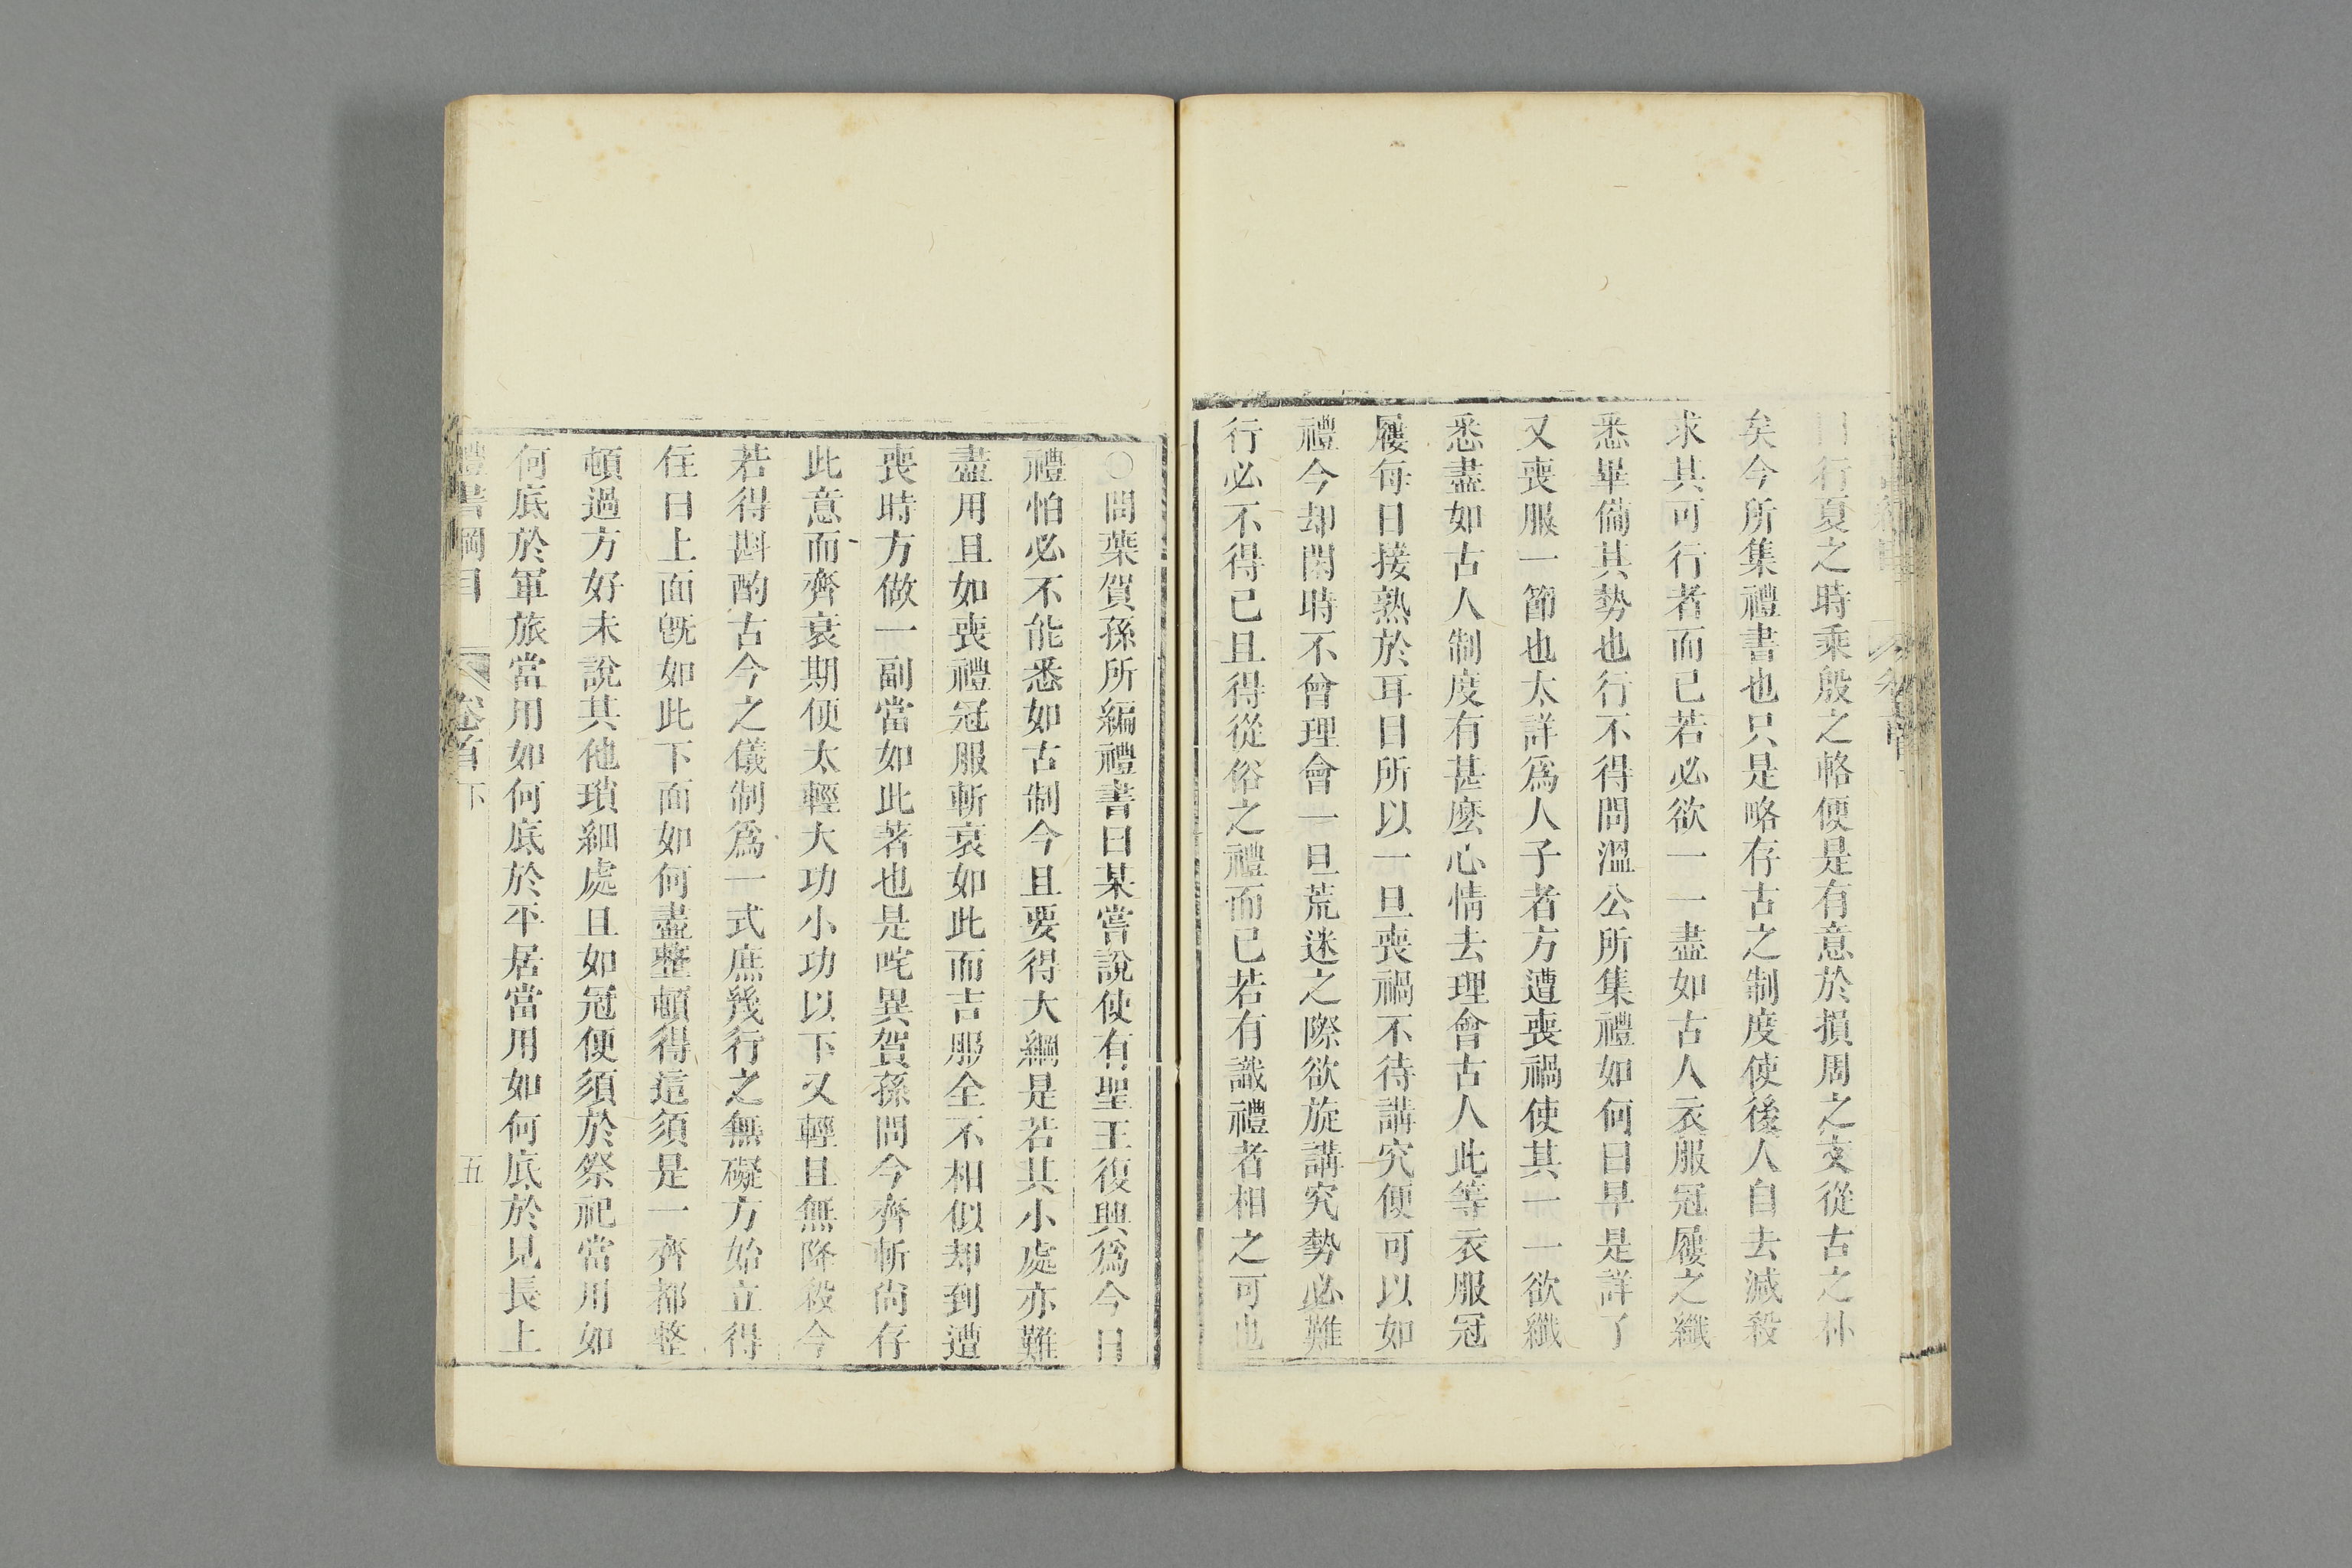 曰行夏之時乘殷之輅便是有意於損周之文從古之朴
矣今所集禮書也只是略存古之制度使後人自去減殺
求其可行者而已若必欲一一盡如古人衣服冠屨之纖
悉畢備其勢也行不得問溫公所集禮如何曰早是詳了
又喪服一節也太詳爲人子者方遭喪禍使其一一欲纖
悉盡如古人制度有甚麽心情去理會古人此等衣服冠
屨每日接熟於耳目所以一旦喪禍不待講究便可以如
禮今却閑時不曾理會一旦荒迷之際欲旋講究勢必難
行必不得已且得從俗之禮而已若有識禮者相之可也
○問葉賀孫所編禮書曰某嘗說使有聖王復興爲今日
禮怕必不能悉如古制今且要得大綱是若其小處亦難
盡用且如喪禮冠服斬衰如此而吉服全不相似却到遭
喪時方做一副當如此著也是咤異賀孫問今齊斬尙存
此意而齊衰期便太輕大功小功以下又輕且無降殺今
若得斟酌古今之儀制爲一式庶幾行之無礙方始立得
住曰上面旣如此下面如何盡整頓得這須是一齊都整
頓過方好未說其他瑣細處且如冠便須於祭祀當用如
何底於軍旅當用如何底於平居當用如何底於見長上
禮書綱目 卷首下 五